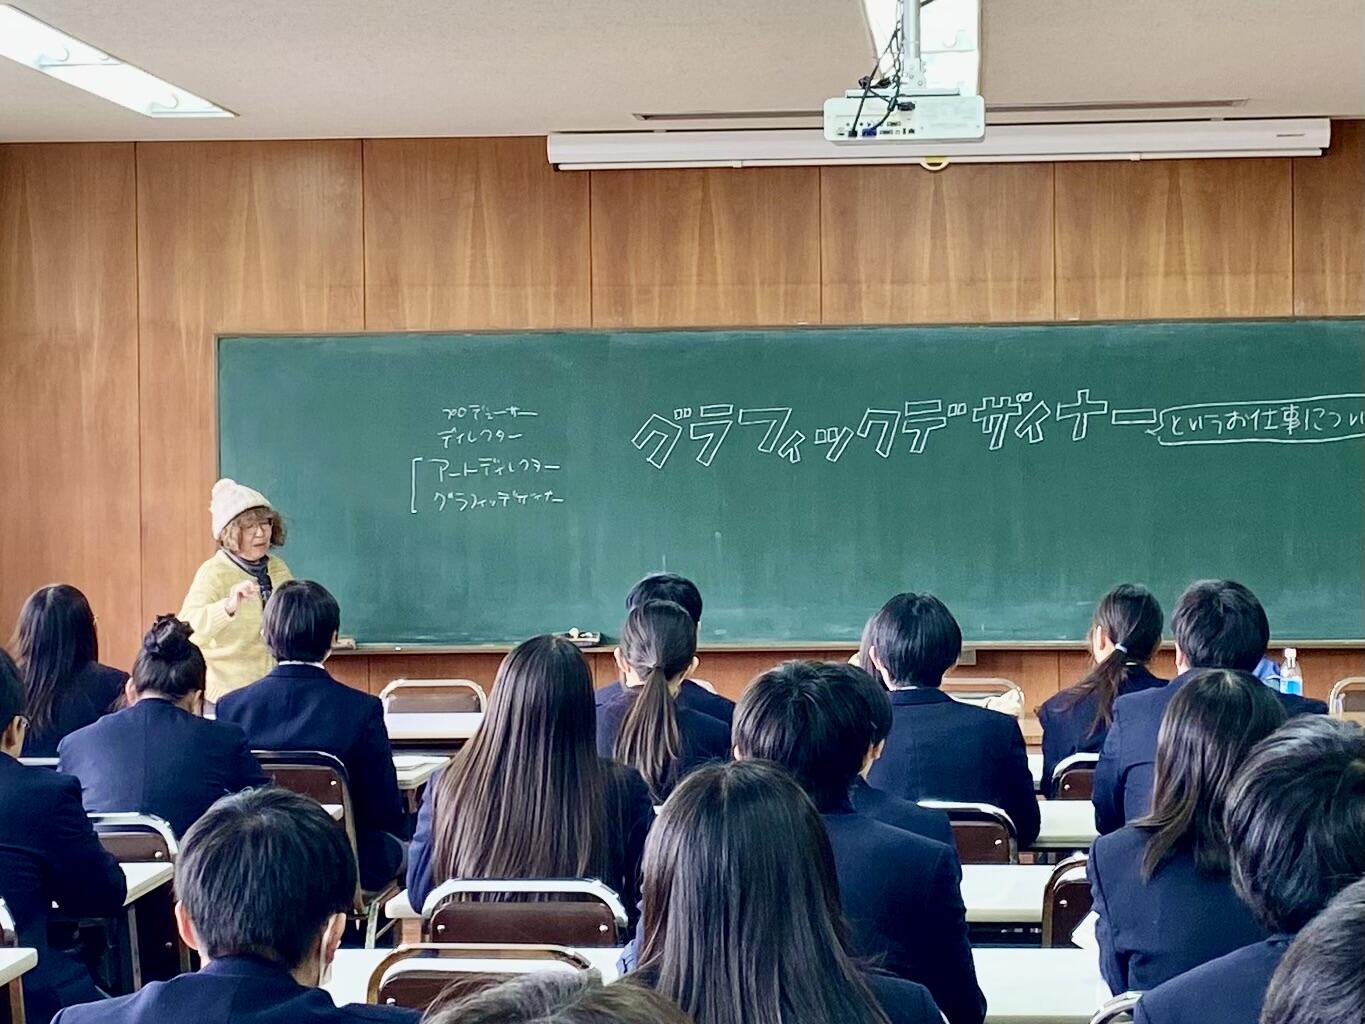 プロデューサー
ディレクター
アートディレクター
グラフィックデザイナー
グラフィックデザイナー
というお仕事につい